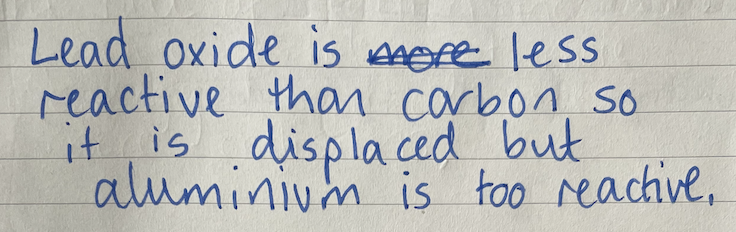 Lead oxide is more less
reactive than carbon so
it is displaced but
aluminium is too reactive.